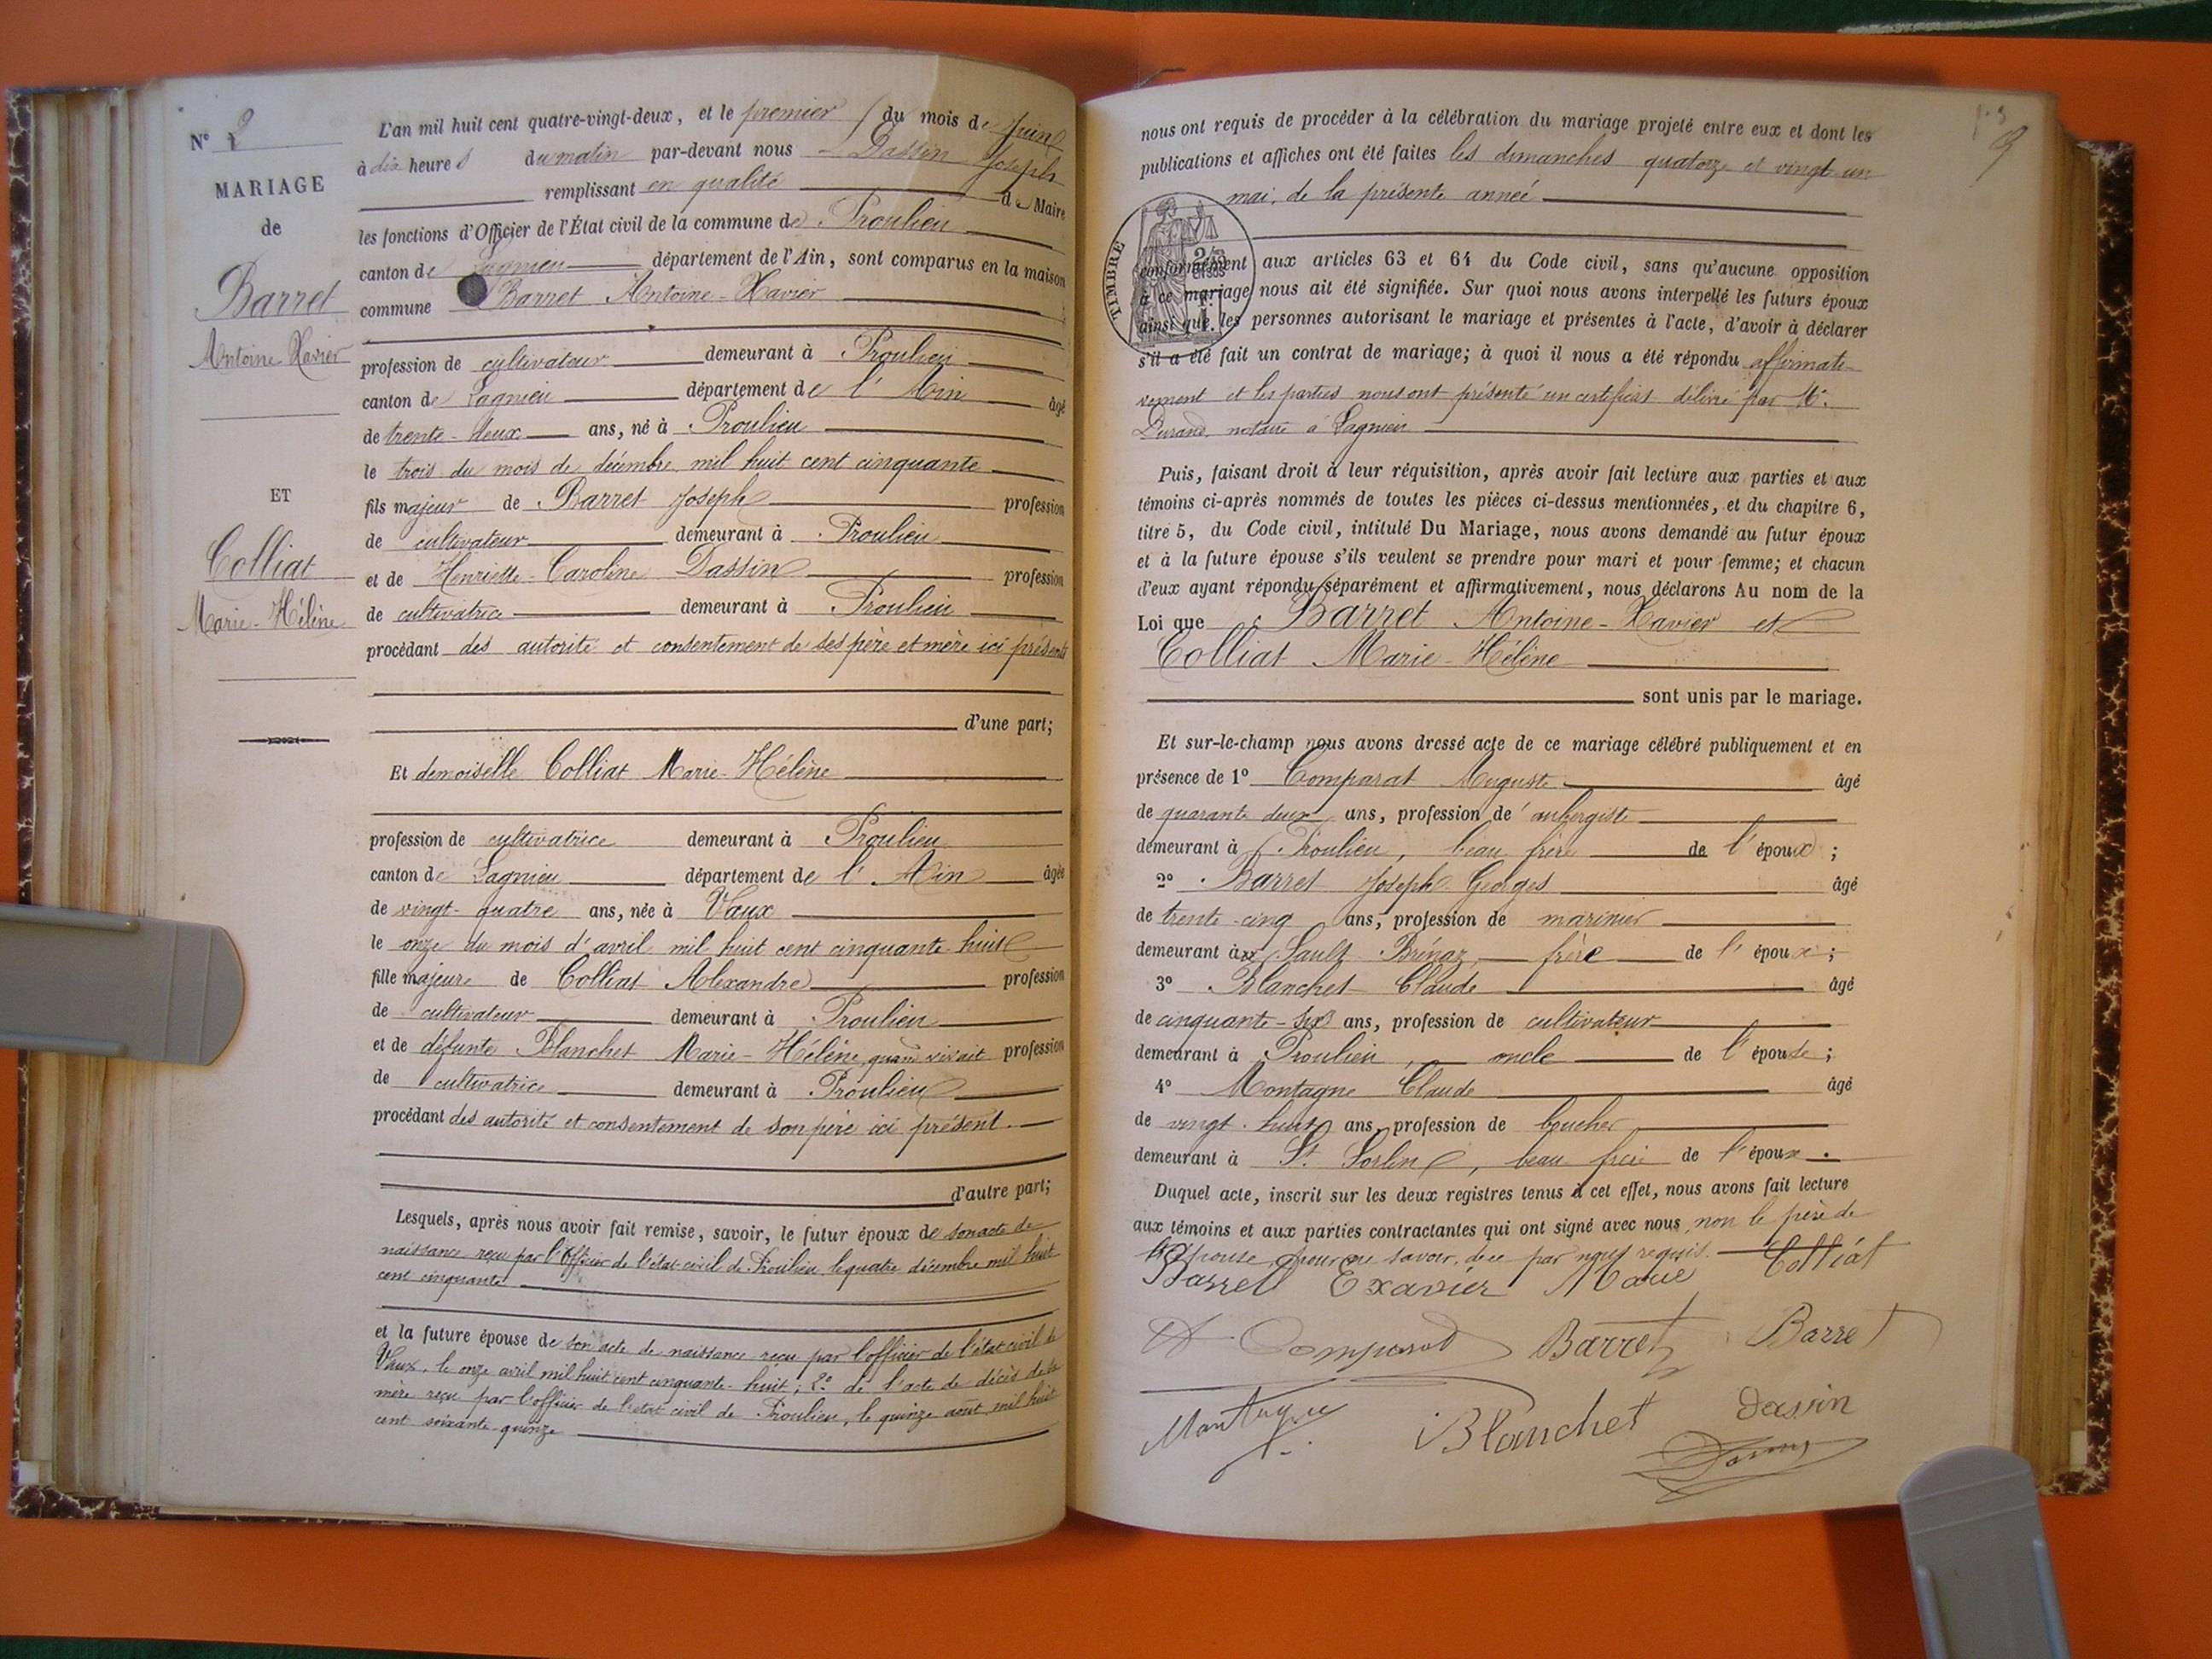 N° 2
MARIAGE
de
Barret
Antoine Xavier
ET
Colliat
Marie-Hélène
L'an mil huit cent quatre-vingt-deux, et le premier du mois de Juin
à dix heures du matin par-devant nous Dassin Joseph
remplissant en qualité de Maire
les fonctions d'Officier de l'État civil de la commune de Proulieu
canton de Lagnieu département de l'Ain, sont comparus en la maison
commune Barret Antoine-Xavier
profession de cultivateur demeurant à Proulieu
canton de Lagnieu département de l'Ain âgé
de trente-deux ans, né à Proulieu
le trois du mois de décembre mil huit cent cinquante
fils majeur de Barret Joseph profession
de cultivateur demeurant à Proulieu
et de Henriette-Caroline Dassin profession
de cultivatrice demeurant à Proulieu
procédant des autorité et consentement de ses père et mère ici présents
d'une part;
Et demoiselle Colliat Marie-Hélène
profession de cultivatrice demeurant à Proulieu
canton de Lagnieu département de l'Ain âgée
de vingt-quatre ans, née à Vaux
le onze du mois d'avril mil huit cent cinquante-huit
fille majeure de Colliat Alexandre profession
de cultivateur demeurant à Proulieu
et de défunte Blanchet Marie-Hélène, quand vivait profession
de cultivatrice demeurant à Proulieu
procédant des autorité et consentement de son père ici présent.
d'autre part;
Lesquels, après nous avoir fait remise, savoir, le futur époux de son acte de
naissance reçu par l'officier de l'état civil de Proulieu le quatre décembre mil huit
cent cinquante
et la future épouse de son acte de naissance reçu par l'officier de l'état civil de
Vaux, le onze avril mil huit cent cinquante-huit; 2° de l'acte de décès de la
mère reçu par l'officier de l'état civil de Proulieu, le quinze aout mil huit
cent soixante-quinze
9
nous ont requis de procéder à la célébration du mariage projeté entre eux et dont les
publications et affiches ont été faites les dimanches quatorze et vingt un
mai, de la présente année
TIMBRE
conformément aux articles 63 et 64 du Code civil, sans qu'aucune opposition
à ce mariage nous ait été signifiée. Sur quoi nous avons interpellé les futurs époux
ainsi que les personnes autorisant le mariage et présentes à l'acte, d'avoir à déclarer
s'il a été fait un contrat de mariage; à quoi il nous a été répondu affirmati-
vement et les parties nous ont présenté un certificat délivré par Me.
Durand, notaire à Lagnieu
Puis, faisant droit à leur réquisition, après avoir fait lecture aux parties et aux
témoins ci-après nommés de toutes les pièces ci-dessus mentionnées, et du chapitre 6,
titre 5, du Code civil, intitulé Du Mariage, nous avons demandé au futur époux
et à la future épouse s'ils veulent se prendre pour mari et pour femme; et chacun
d'eux ayant répondu séparément et affirmativement, nous déclarons Au nom de la
Loi que Barret Antoine-Xavier et
Colliat Marie-Hélène
sont unis par le mariage.
Et sur-le-champ nous avons dressé acte de ce mariage célébré publiquement et en
présence de 1° Comparat Auguste âgé
de quarante deux ans, profession de aubergiste
demeurant à Proulieu, beau frère de l'époux;
2° Barret Joseph Georges âgé
de trente-cinq ans, profession de marinier
demeurant à Sault Brénaz, frère de l'époux;
3° Blanchet Claude âgé
de cinquante-six ans, profession de cultivateur
demeurant à Proulieu, oncle de l'épouse;
4° Montagne Claude âgé
de vingt-huit ans, profession de boucher
demeurant à St. Sorlin, beau frère de l'époux.
Duquel acte, inscrit sur les deux registres tenus à cet effet, nous avons fait lecture
aux témoins et aux parties contractantes qui ont signé avec nous non le père de
l'épouse, pour ne savoir, de ce par nous requis. Colliat
Barret Exavier Marie
A Comparat Barret Barret
Montagne Blanchet Dassin